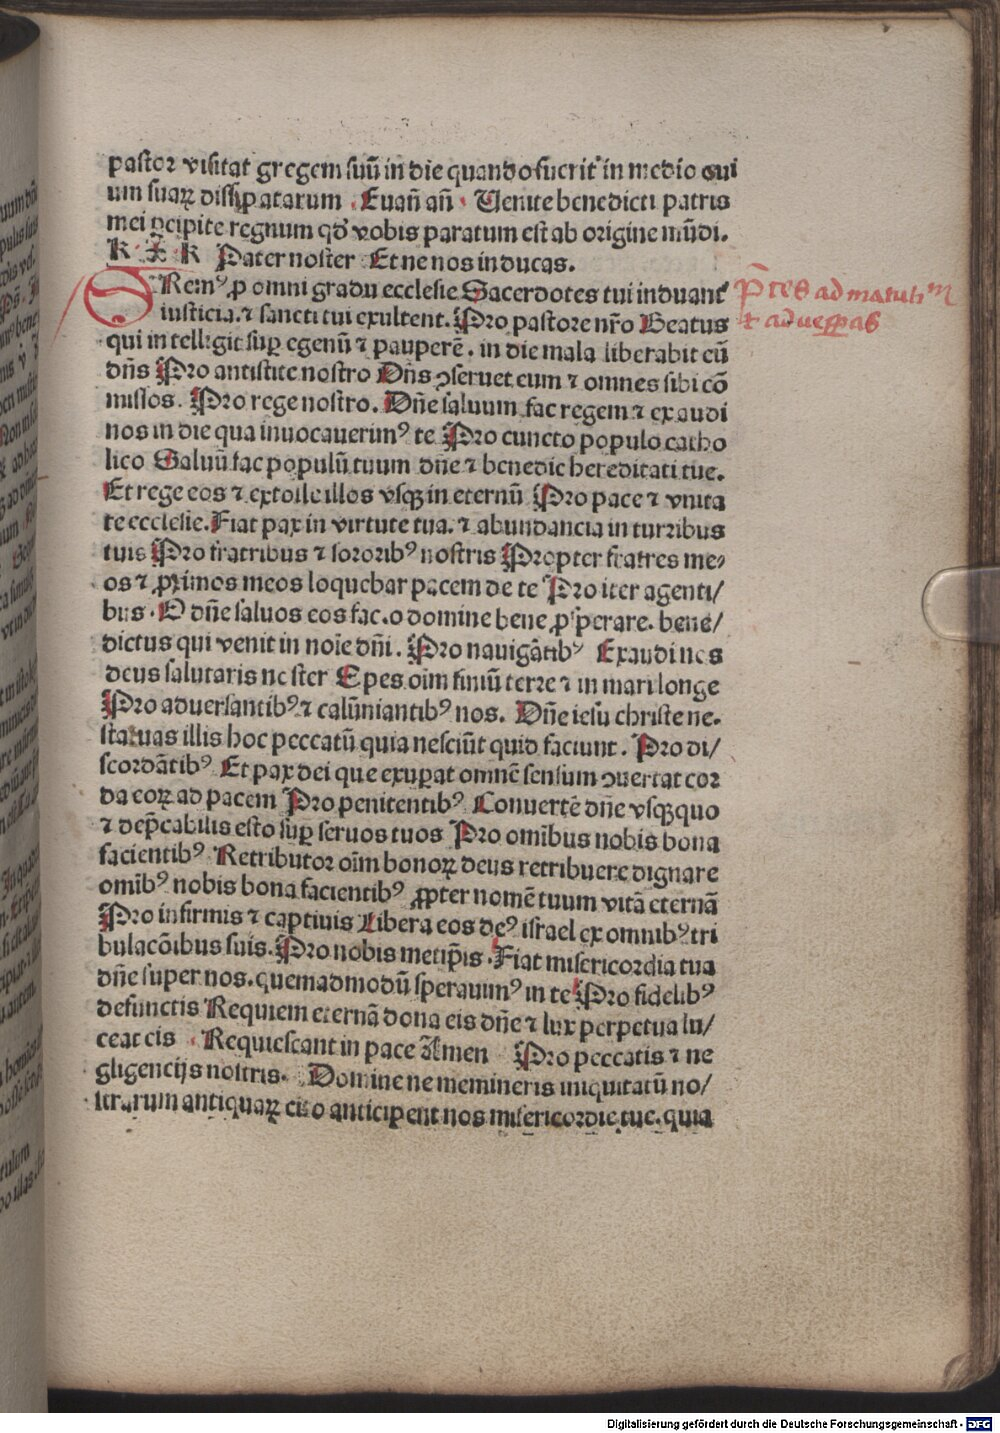 pastor visitat gregem suū in die quando fuerit in medio oui
um suaꝝ dissipatarum . Euan̄ an̄ . Uenite benedicti patris
mei ꝑcipite regnum qď vobis paratum est ab origine mūdi.
K . X . K Pater noster Et ne nos inducas.
ORemꝰ ꝓ omni gradu ecclesie Sacerdotes tui induant̉
iusticia. ⁊ sancti tui exultent. Pro pastore nr̄o Beatus
qui intelligit suꝑ egenū ⁊ pauperē. in die mala liberabit eū
dn̄s Pro antistite nostro Dn̄s ꝯseruet eum ⁊ omnes sibi cō
missos. Pro rege nostro. Dn̄e saluum fac regem ⁊ exaudi
nos in die qua inuocauerimꝰ te Pro cuncto populo catho
lico Saluū fac populū tuum dn̄e ⁊ benedic hereditati tue.
Et rege eos ⁊ extolle illos vsqꝫ in eternū Pro pace ⁊ vnita
te ecclesie. Fiat pax in virtute tua. ⁊ abundancia in turribus
tuis Pro fratribus ⁊ sororibꝰ nostris Propter fratres me⸗
os ⁊ ꝓximos meos loquebar pacem de te Pro iter agenti/
bus . O dn̄e saluos eos fac. o domine bene ꝓsperare. bene/
dictus qui venit in noīe dn̄i. Pro nauigātibꝰ Exaudi nos
deus salutaris noster Spes oīm finiū terre ⁊ in mari longe
Pro aduersantibꝰ ⁊ calūniantibꝰ nos. Dn̄e iesu christe ne.
statuas illis hoc peccatū quia nesciūt quid faciunt. Pro di/
scordātibꝰ Et pax dei que exuꝑat omnē sensum ꝯuertat cor
da eoꝝ ad pacem Pro penitentibꝰ Conuertē dn̄e vsqꝫquo
⁊ dep̄cabilis esto suꝑ seruos tuos Pro omībus nobis bona
facientibꝰ Retributor oīm bonoꝝ deus retribuere dignare
omībꝰ nobis bona facientibꝰ ꝓpter nomē tuum vitā eternā
Pro infirmis ⁊ captiuis Libera eos deꝰ israel ex omnibꝰ tri
bulacōibus suis. Pro nobis metip̄is . Fiat misericordia tua
dn̄e super nos. quemadmodū sperauimꝰ in te Pro fidelibꝰ
defunctis Requiem eternā dona eis dn̄e ⁊ lux perpetua lu/
ceat eis . Requiescant in pace Amen Pro peccatis ⁊ ne
gligencijs nostris. Domine ne memineris iniquitatū no/
strarum antiquaꝝ cito anticipent nos misericordie tue. quia
P̄ces ad matuti᷑m
⁊ ad uesꝑas
Digitalisierung gefördert durch die Deutsche Forschungsgemeinschaft - DFG